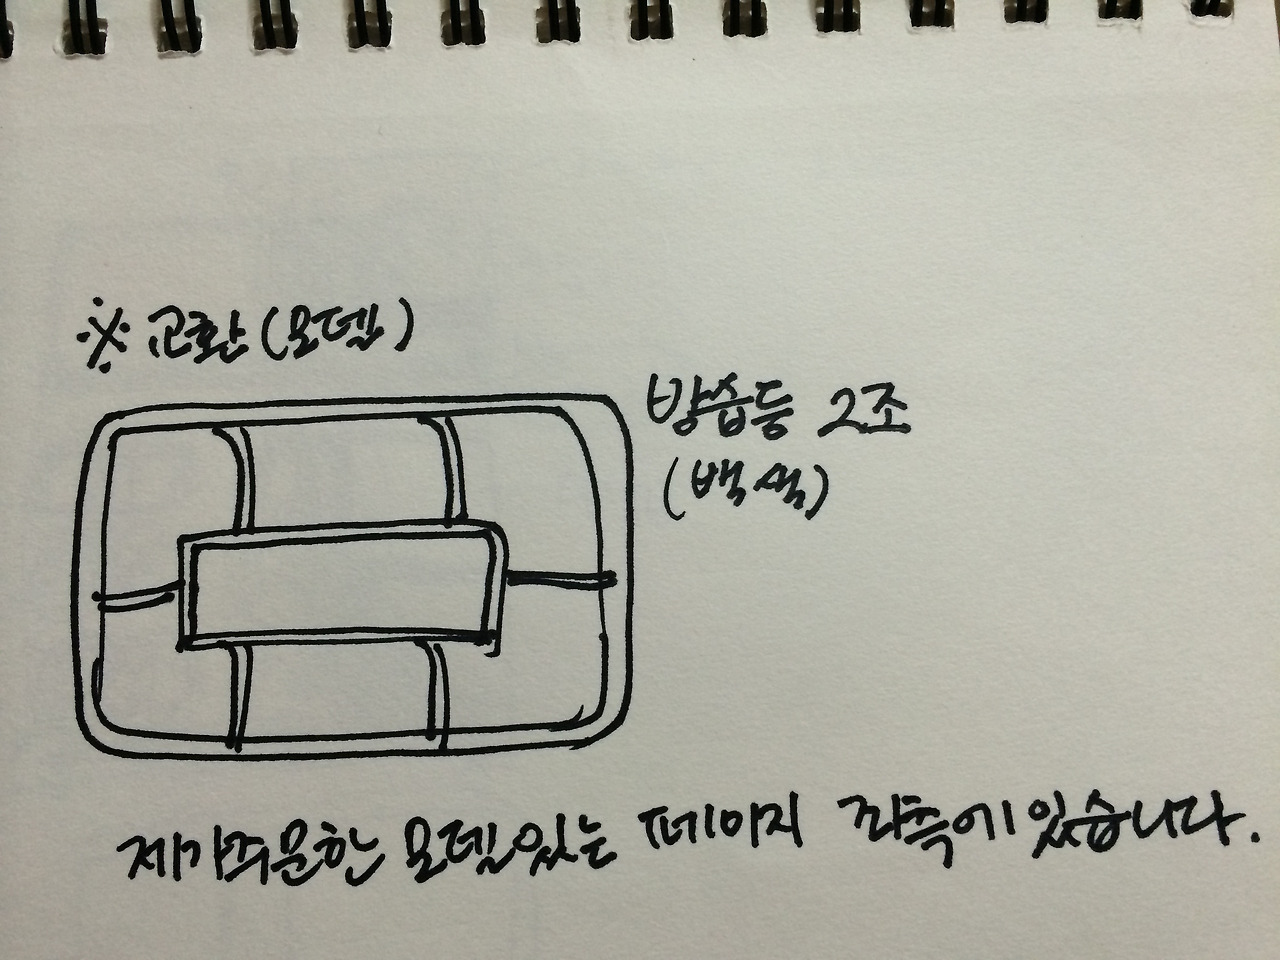 ※ 교환(모델)
방습등 2조
(백색)
제가주문한 모델있는 페이지 좌측에 있습니다.